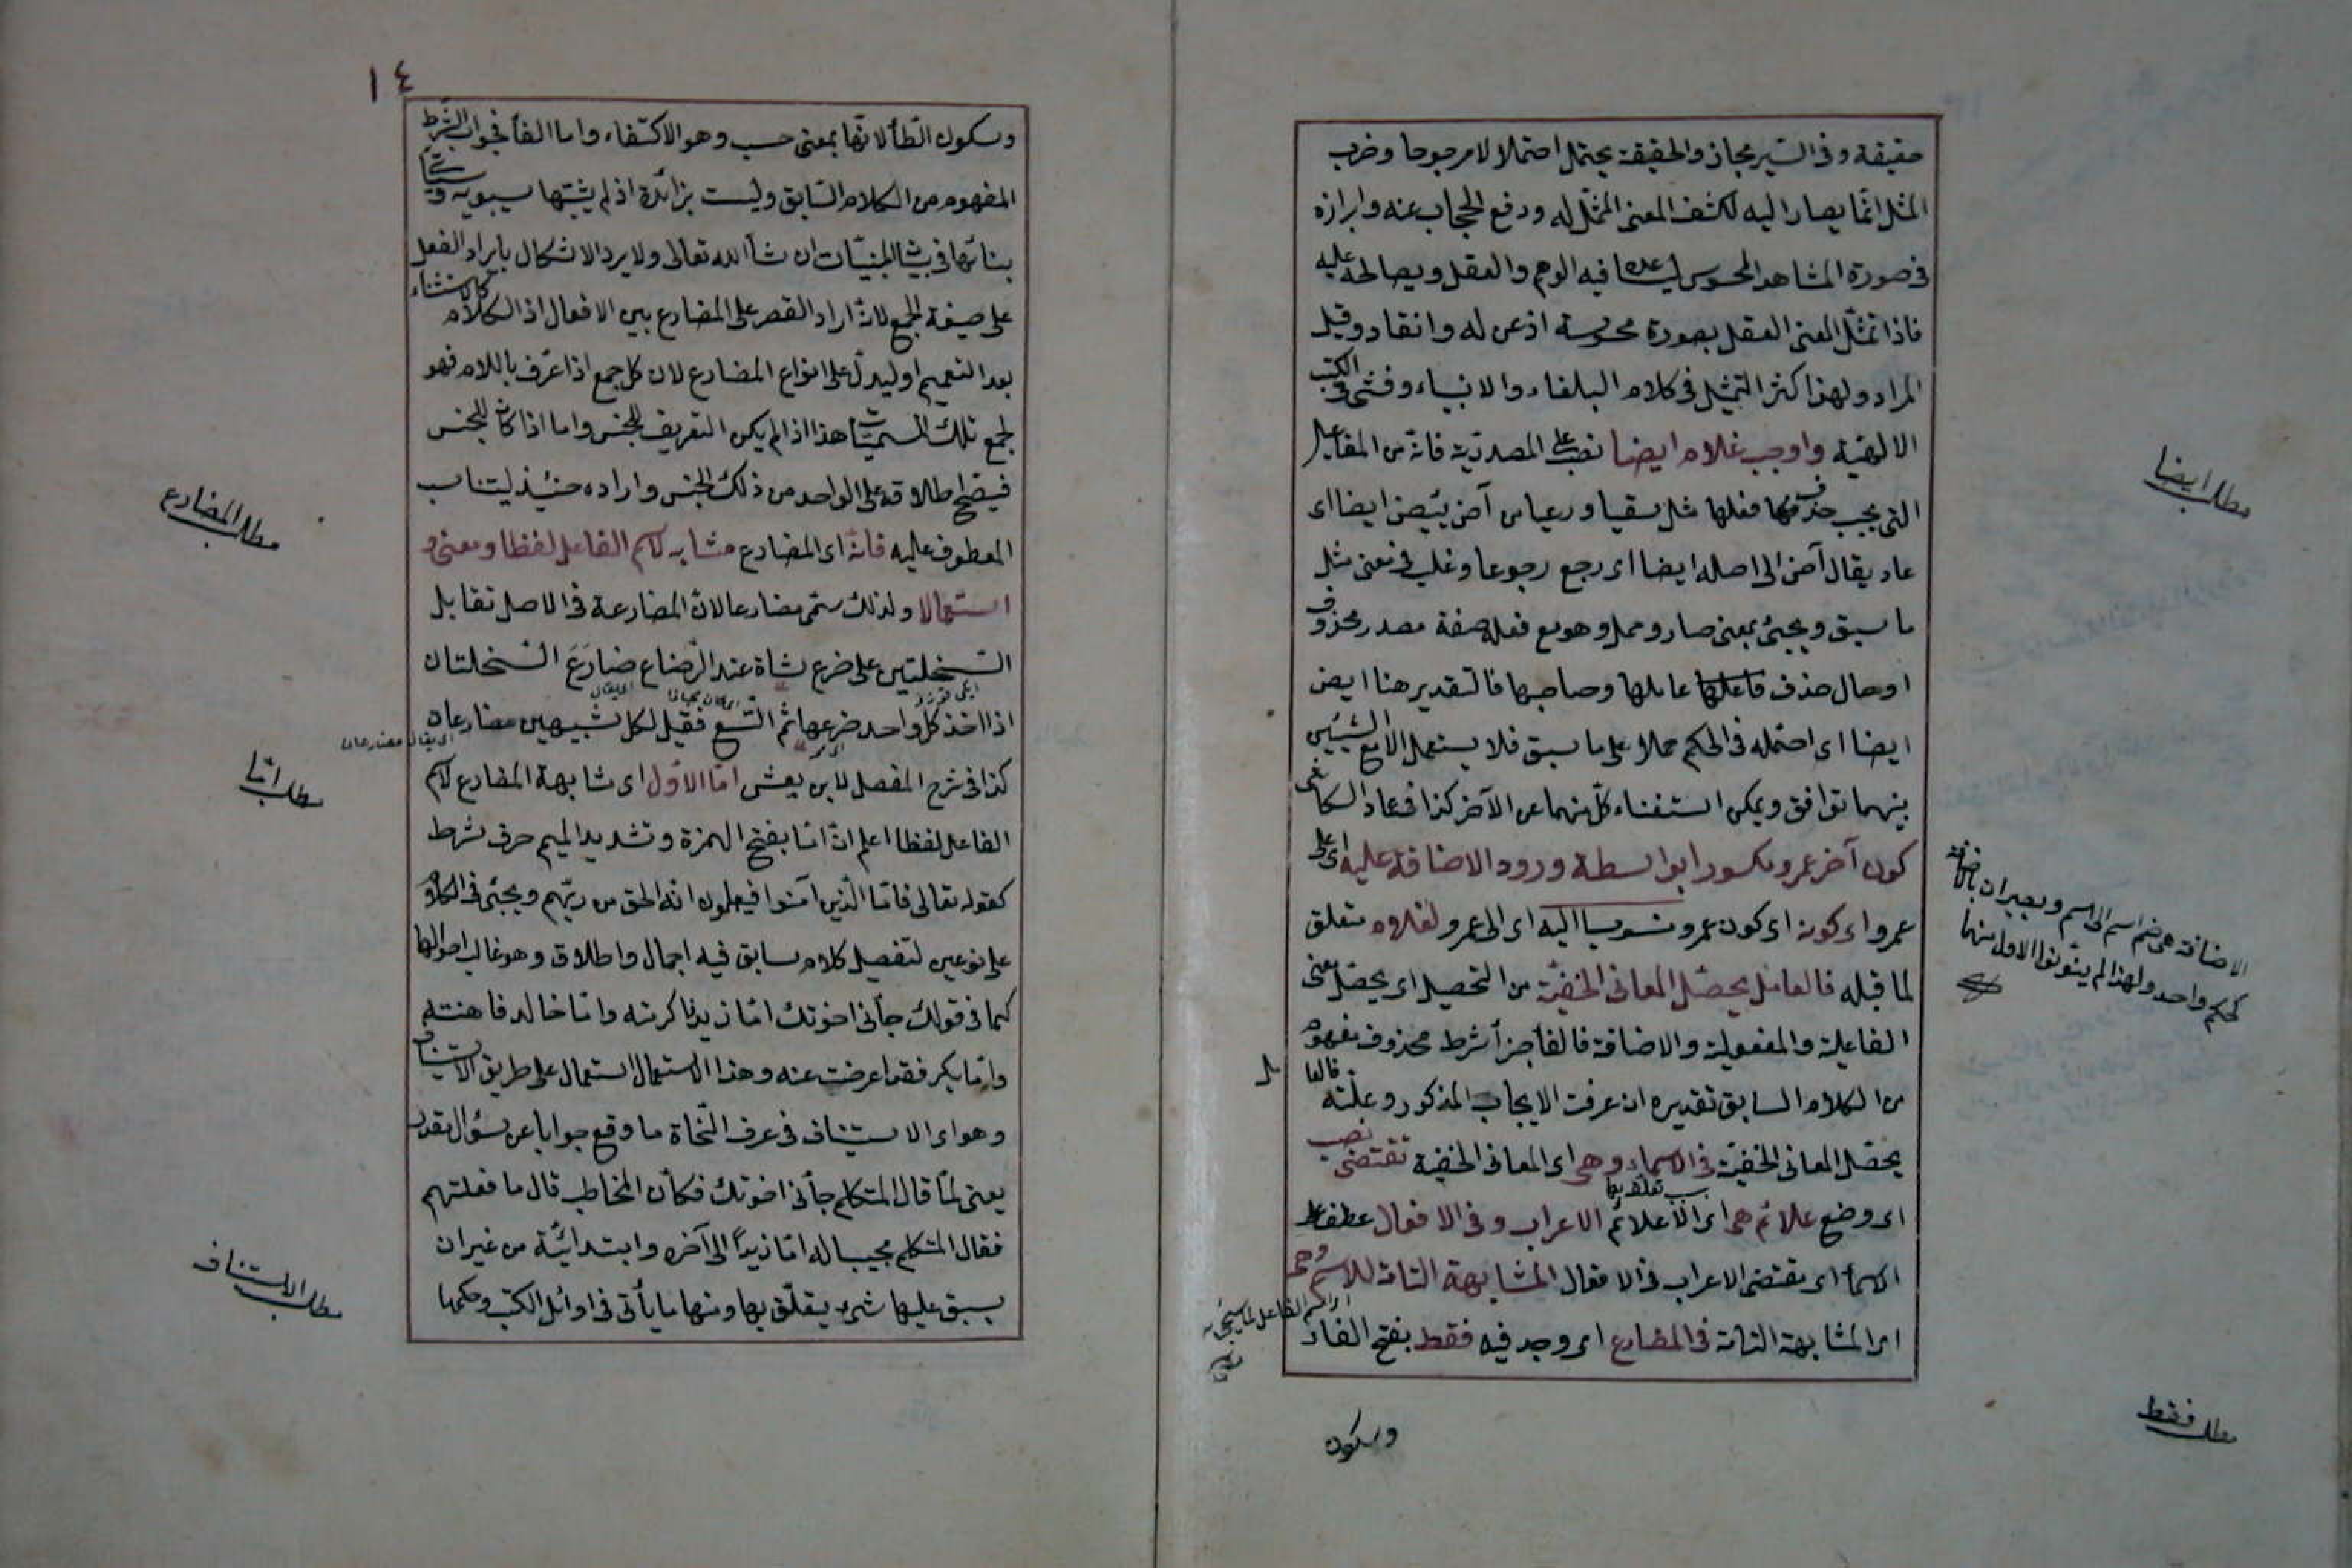 حقيقة وفى السّير مجاز والحقيقة يحتمل احتمالا لامرجوحا وضرب
المثل انّما يصار اليه لكشف المعنى الممثّل له ودفع الحجاب عنه وابرازه
فى صورة المشاهد المحسوس ليساعده فيه الوهم والعقل ويصالحه عليه
فاذا تمثّل المعنى العقل بصورة محسوسة اذعن له وانقاد وقيل
المراد ولهذا كثر التمثيل فى كلام البلغاء والانبياء وفشى فى الكتب
الالهيّة واوجب غلام ايضا نصب على المصدريّة فانّه من المفاعيل
التى يجب حذف فعلها مثل سقيا ورعيا من آض يئيض ايضا اى
عاد يقال آض الى اصله ايضا اى رجع رجوعا وغلب فى معنى مثل
ما سبق ويجئ بمعنى صار وهو مع فعله صفة مصدر محذوف
او حال حذف عاملها وصاحبها فالتقدير هنا ايض
ايضا اى احتمله فى الحكم حملا على ما سبق فلا يستعمل الا مع الشيئين
بينهما توافق ويمكن استغناء كلّ منهما عن الآخر كذا
كون آخر عمرو مكسورا بواسطة ورود الاضافة عليه اى على
عمرو اى كونه اى كون عمرو منسوبا اليه اى الى عمرو لغلام متعلق
لما قبله فالعامل يحصّل المعانى الخفيّة من التحصيل اى يحصّل معنى
الفاعلية والمفعولية والاضافة فالفاء جزاء شرط محذوف مفهوم
من الكلام السابق تقديره ان عرفت الايجاب المذكور وعلّته فالعامل
يحصّل المعانى الخفيّة فى الاسماء وهى اى المعانى الخفية تقتضى نصب
اى وضع علائم هى اى العلائم الاعراب وفى الافعال عطف على
الاسماء اى يقتضى الاعراب فى الافعال المشابهة التامّة للاسم وهى
اى المشابهة التامّة فى المضارع اى وجد فيه فقط بفتح الفاء
وسكون
مطلب ايضا
الاضافة هى ضم اسم الى اسم
كحكم واحد ولهذا لم ينونوا الاول منهما
مطلب فقط
١٤
وسكون الطّاء لانّها بمعنى حسب وهو الاكتفاء واما الفاء فجواب الشّرط
المفهوم من الكلام السّابق وليست بزائدة اذ لم يثبتها سيبويه وسيأتى
بنائها فى بحث المبنيّات ان شاء الله تعالى ولا يرد الاشكال بايراد الفعل
على صيغة الجمع لانّه اراد القصر على المضارع بين الافعال اذ الكلام كالاستثناء
بعد التعميم او ليدلّ على انواع المضارع لان كل جمع اذا عرّف باللام فهو
لجمع تلك المسمّيات هذا اذا لم يكن التعريف للجنس واما اذا كان للجنس
فيصح اطلاقه على الواحد من ذلك الجنس واراده حينئذ ليتناسب
المعطوف عليه فانّه اى المضارع مشابه لاسم الفاعل لفظا ومعنى و
استعمالا ولذلك سمّى مضارعا لانّ المضارعة فى الاصل تقابل
السّخلتين على ضرع شاة عند الرّضاع ضارَعَ السّخلتان
اذا اخذ كلّ واحد ضرعها ثمّ اتّسع فقيل لكل شبيهين مضارعان
كذا فى شرح المفصل لابن يعش امّا الاوّل اى مشابهة المضارع لاسم
الفاعل لفظا اعلم انّ امّا بفتح الهمزة وتشديد الميم حرف شرط
كقوله تعالى فامّا الّذين آمنوا فيعلمون انّه الحق من ربّهم ويجئى فى الكلام
على نوعين لتفصيل كلام سابق فيه اجمال واطلاق وهو غالب احوالها
كما فى قولك جاءنى اخوتك امّا زيد فاكرمته وامّا خالد فاهنته
وامّا بكر فقد اعرضت عنه وهذا الاستعمال استعمال على طريق الاستيناف
وهو اى الاستيناف فى عرف النّحاة ما وقع جوابا عن سؤال مقدر
يعنى لمّا قال المتكلم جاءنى اخوتك فكأن المخاطب قال ما فعلتهم
فقال المتكلم مجيبا له امّا زيدًا الى آخره وابتدائيّة من غير ان
يسبق عليها شىء يتعلّق بها ومنها ما يأتى فى اوائل الكتب وحكمها
مطلب المضارع
مطلب امّا
مطلب الاستيناف